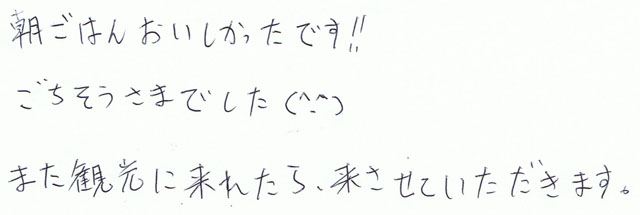 朝ごはんおいしかったです!!
ごちそうさまでした(^-^)
また観光に来れたら、来させていただきます。